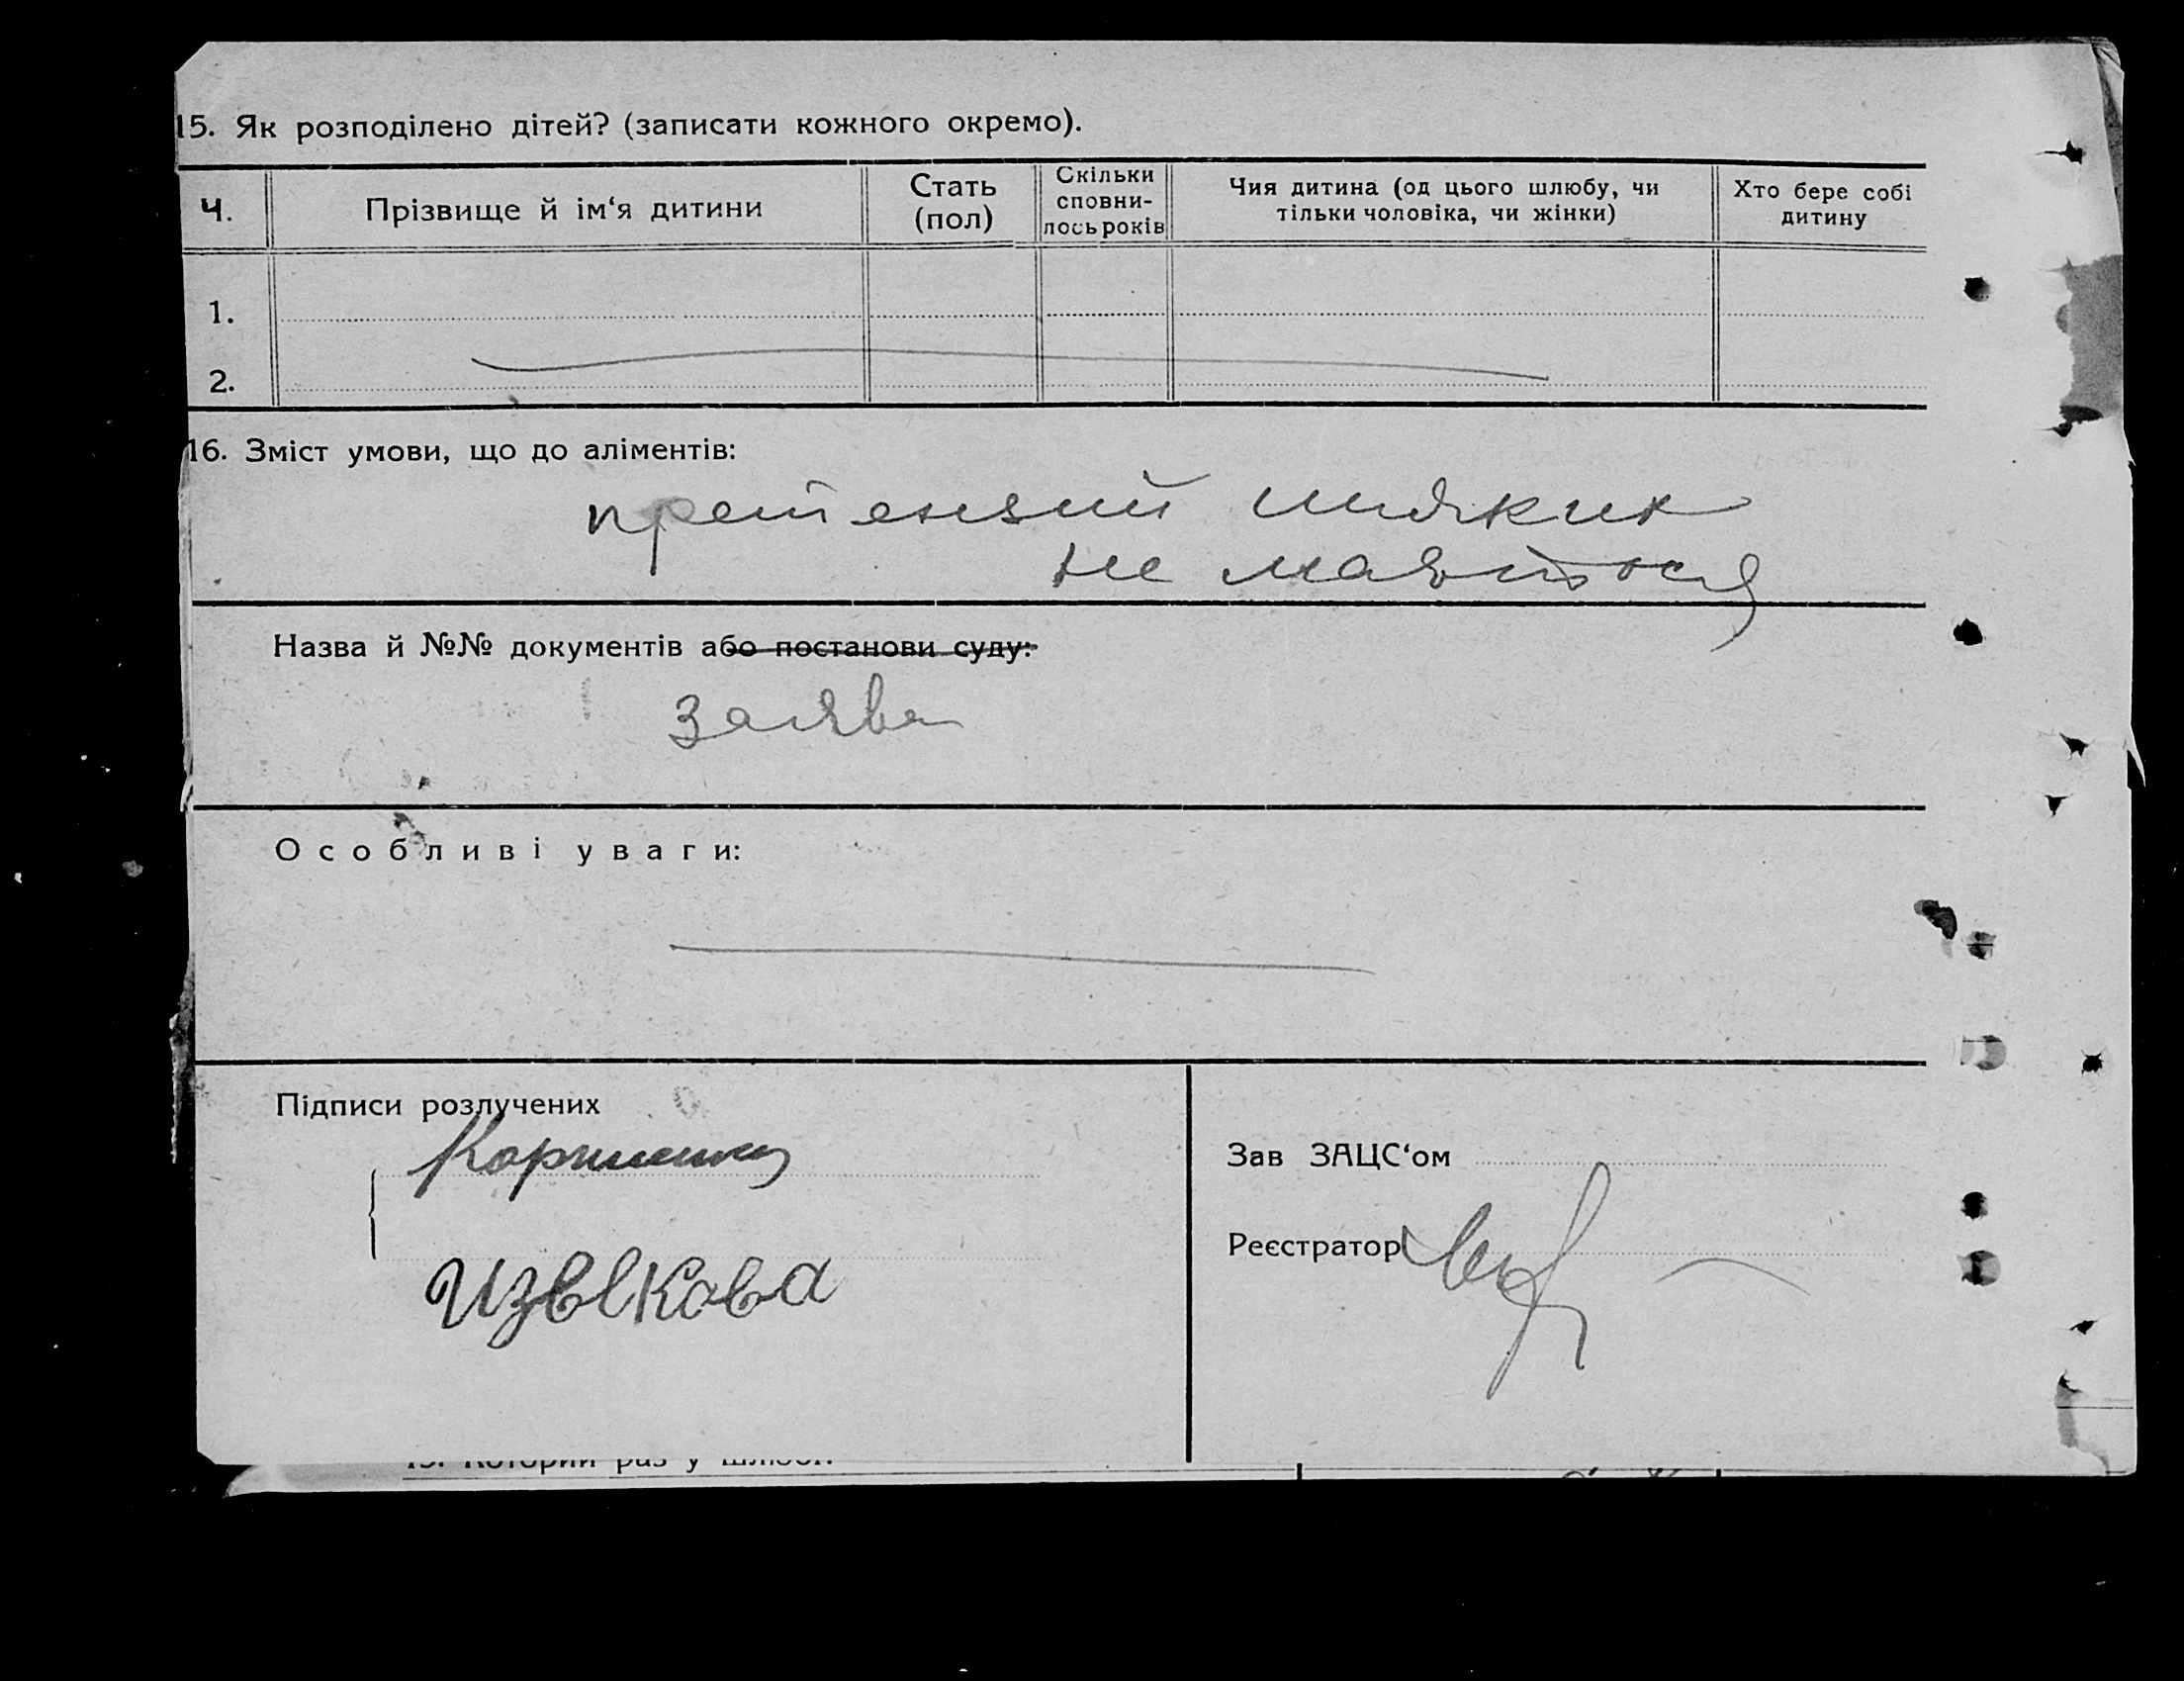 15. Як розподілено дітей? (записати кожного окремо).
Ч.
Прізвище й ім‘я дитини
Стать (пол)
Скільки сповни- лось років
Чия дитина (од цього шлюбу, чи тільки чоловіка, чи жінки)
Хто бере собі дитину
1.
2.
16. Зміст умови, що до аліментів:
претензий ніяких
не мається
Назва й №№ документів або постанови суду:
заява
Особливі уваги:
Підписи розлучених
Зав ЗАЦС‘ом
Реєстратор
Извекова
13. Который раз у шлюбі.